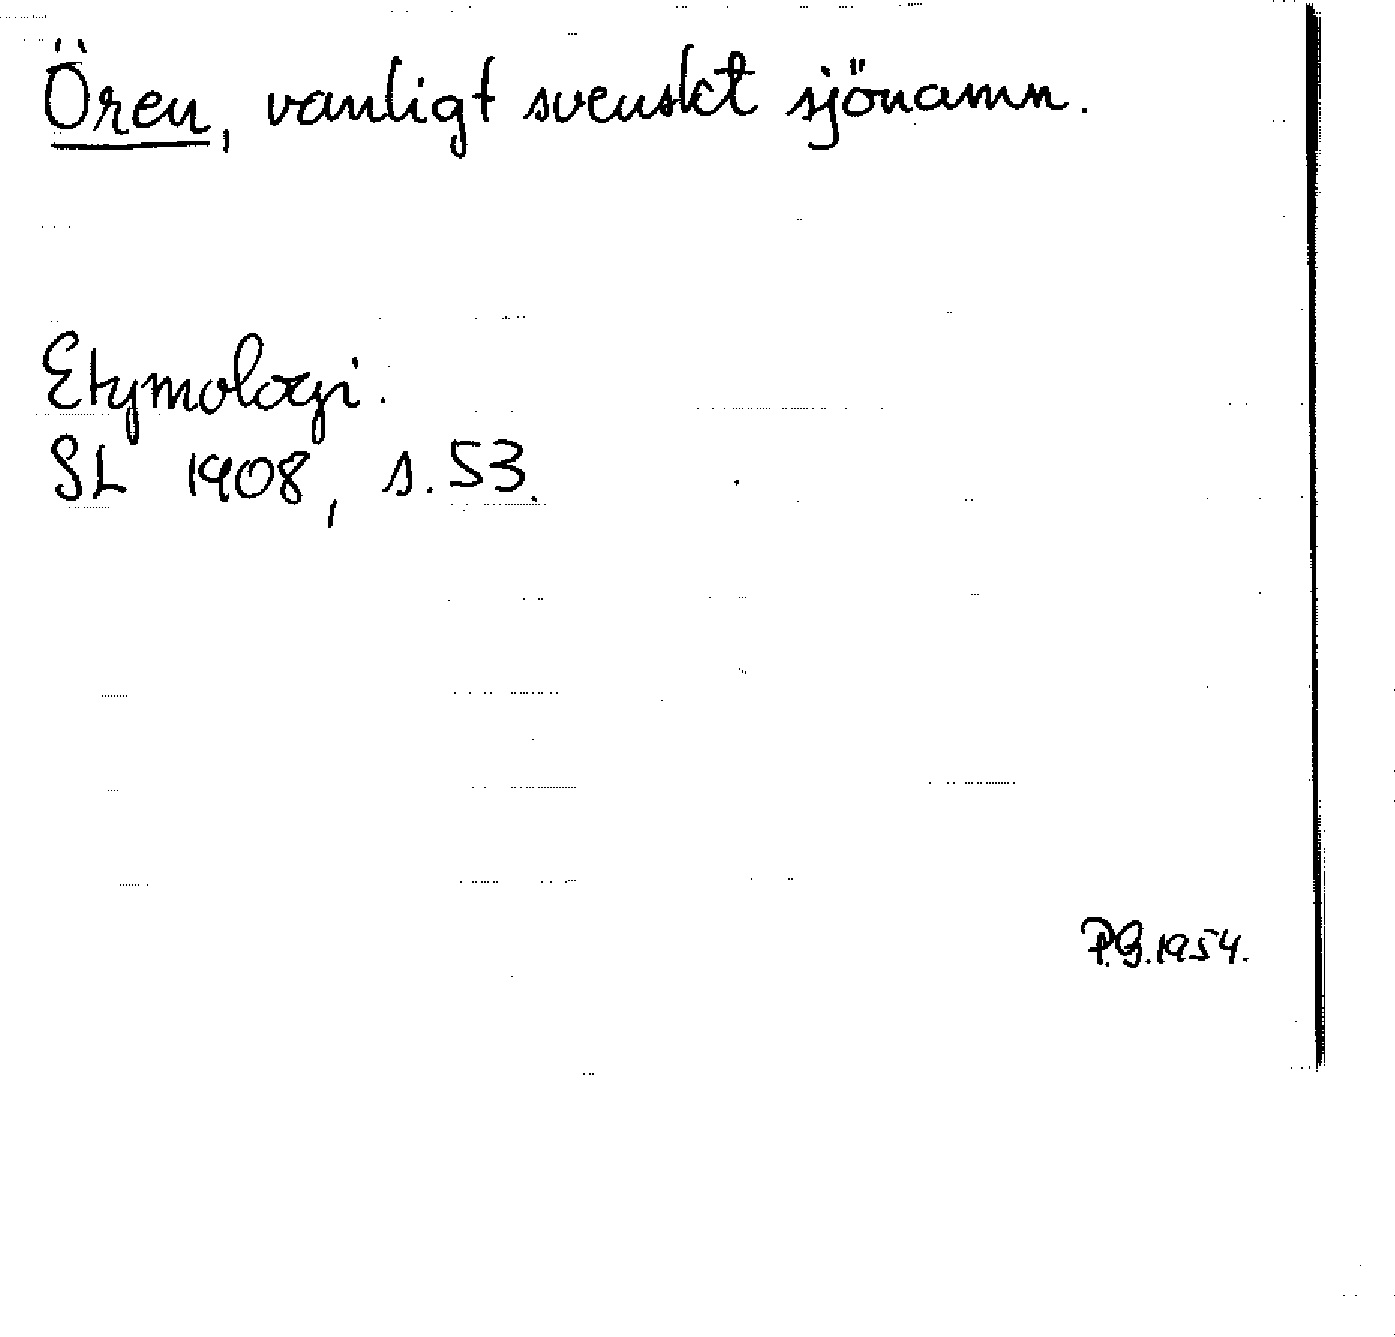 Ören, vanligt svenskt sjönamn.
Etymologi.
SL 1908, s. 53.
P.G. 1954.